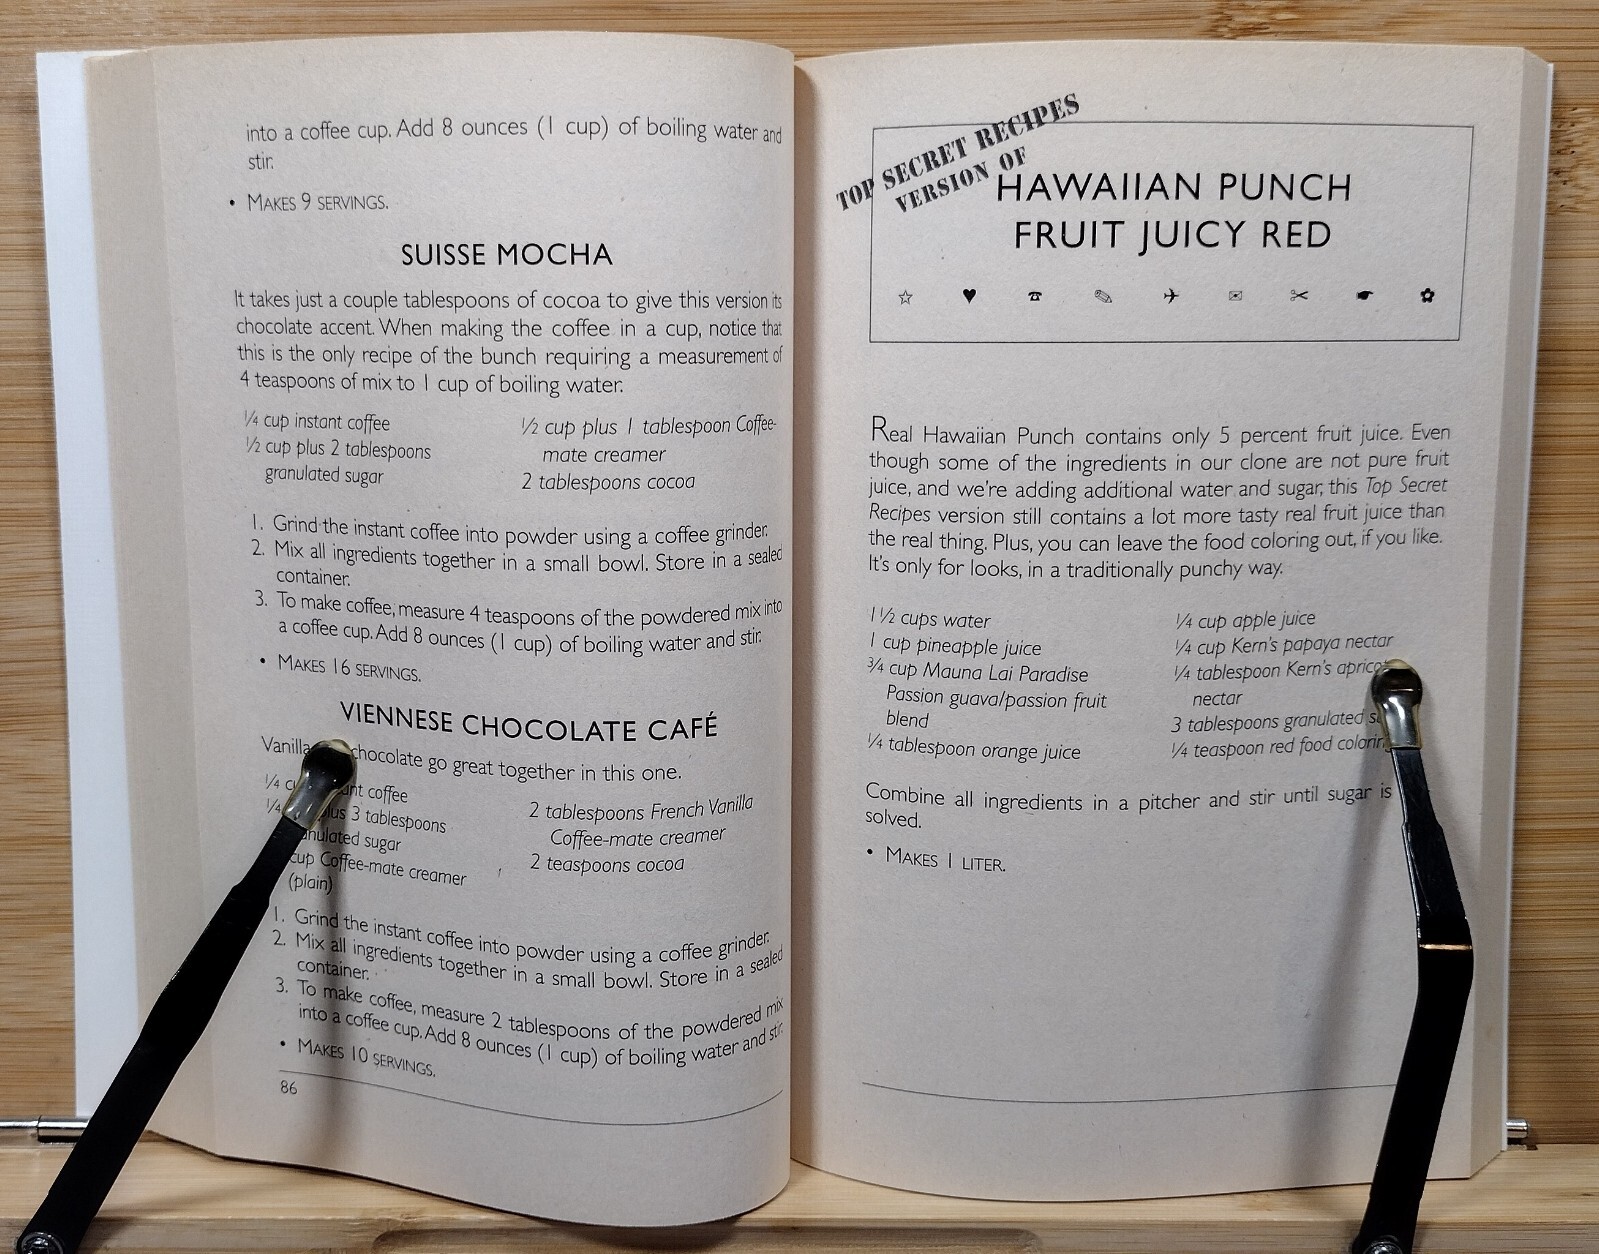 into a coffee cup. Add 8 ounces (1 cup) of boiling water and
stir.
• MAKES 9 SERVINGS.
SUISSE MOCHA
It takes just a couple tablespoons of cocoa to give this version its
chocolate accent. When making the coffee in a cup, notice that
this is the only recipe of the bunch requiring a measurement of
4 teaspoons of mix to 1 cup of boiling water.
¼ cup instant coffee
½ cup plus 2 tablespoons
granulated sugar
½ cup plus 1 tablespoon Coffee-
mate creamer
2 tablespoons cocoa
1. Grind the instant coffee into powder using a coffee grinder.
2. Mix all ingredients together in a small bowl. Store in a sealed
container.
3. To make coffee, measure 4 teaspoons of the powdered mix into
a coffee cup. Add 8 ounces (1 cup) of boiling water and stir.
• MAKES 16 SERVINGS.
VIENNESE CHOCOLATE CAFÉ
Vanilla chocolate go great together in this one.
¼ coffee
¼ plus 3 tablespoons
sugar
cup Coffee-mate creamer
(plain)
2 tablespoons French Vanilla
Coffee-mate creamer
2 teaspoons cocoa
1. Grind the instant coffee into powder using a coffee grinder.
2. Mix all ingredients together in a small bowl. Store in a sealed
container.
3. To make coffee, measure 2 tablespoons of the powdered mix
into a coffee cup. Add 8 ounces (1 cup) of boiling water and stir.
• MAKES 10 SERVINGS.
86
TOP SECRET RECIPES
VERSION OF
HAWAIIAN PUNCH
FRUIT JUICY RED
Real Hawaiian Punch contains only 5 percent fruit juice. Even
though some of the ingredients in our clone are not pure fruit
juice, and we're adding additional water and sugar, this Top Secret
Recipes version still contains a lot more tasty real fruit juice than
the real thing. Plus, you can leave the food coloring out, if you like.
It's only for looks, in a traditionally punchy way.
1½ cups water
1 cup pineapple juice
¾ cup Mauna Lai Paradise
Passion guava/passion fruit
blend
¼ tablespoon orange juice
¼ cup apple juice
¼ cup Kern's papaya nectar
¼ tablespoon Kern's apricot
nectar
3 tablespoons granulated
¼ teaspoon red food coloring
Combine all ingredients in a pitcher and stir until sugar is
solved.
• MAKES 1 LITER.